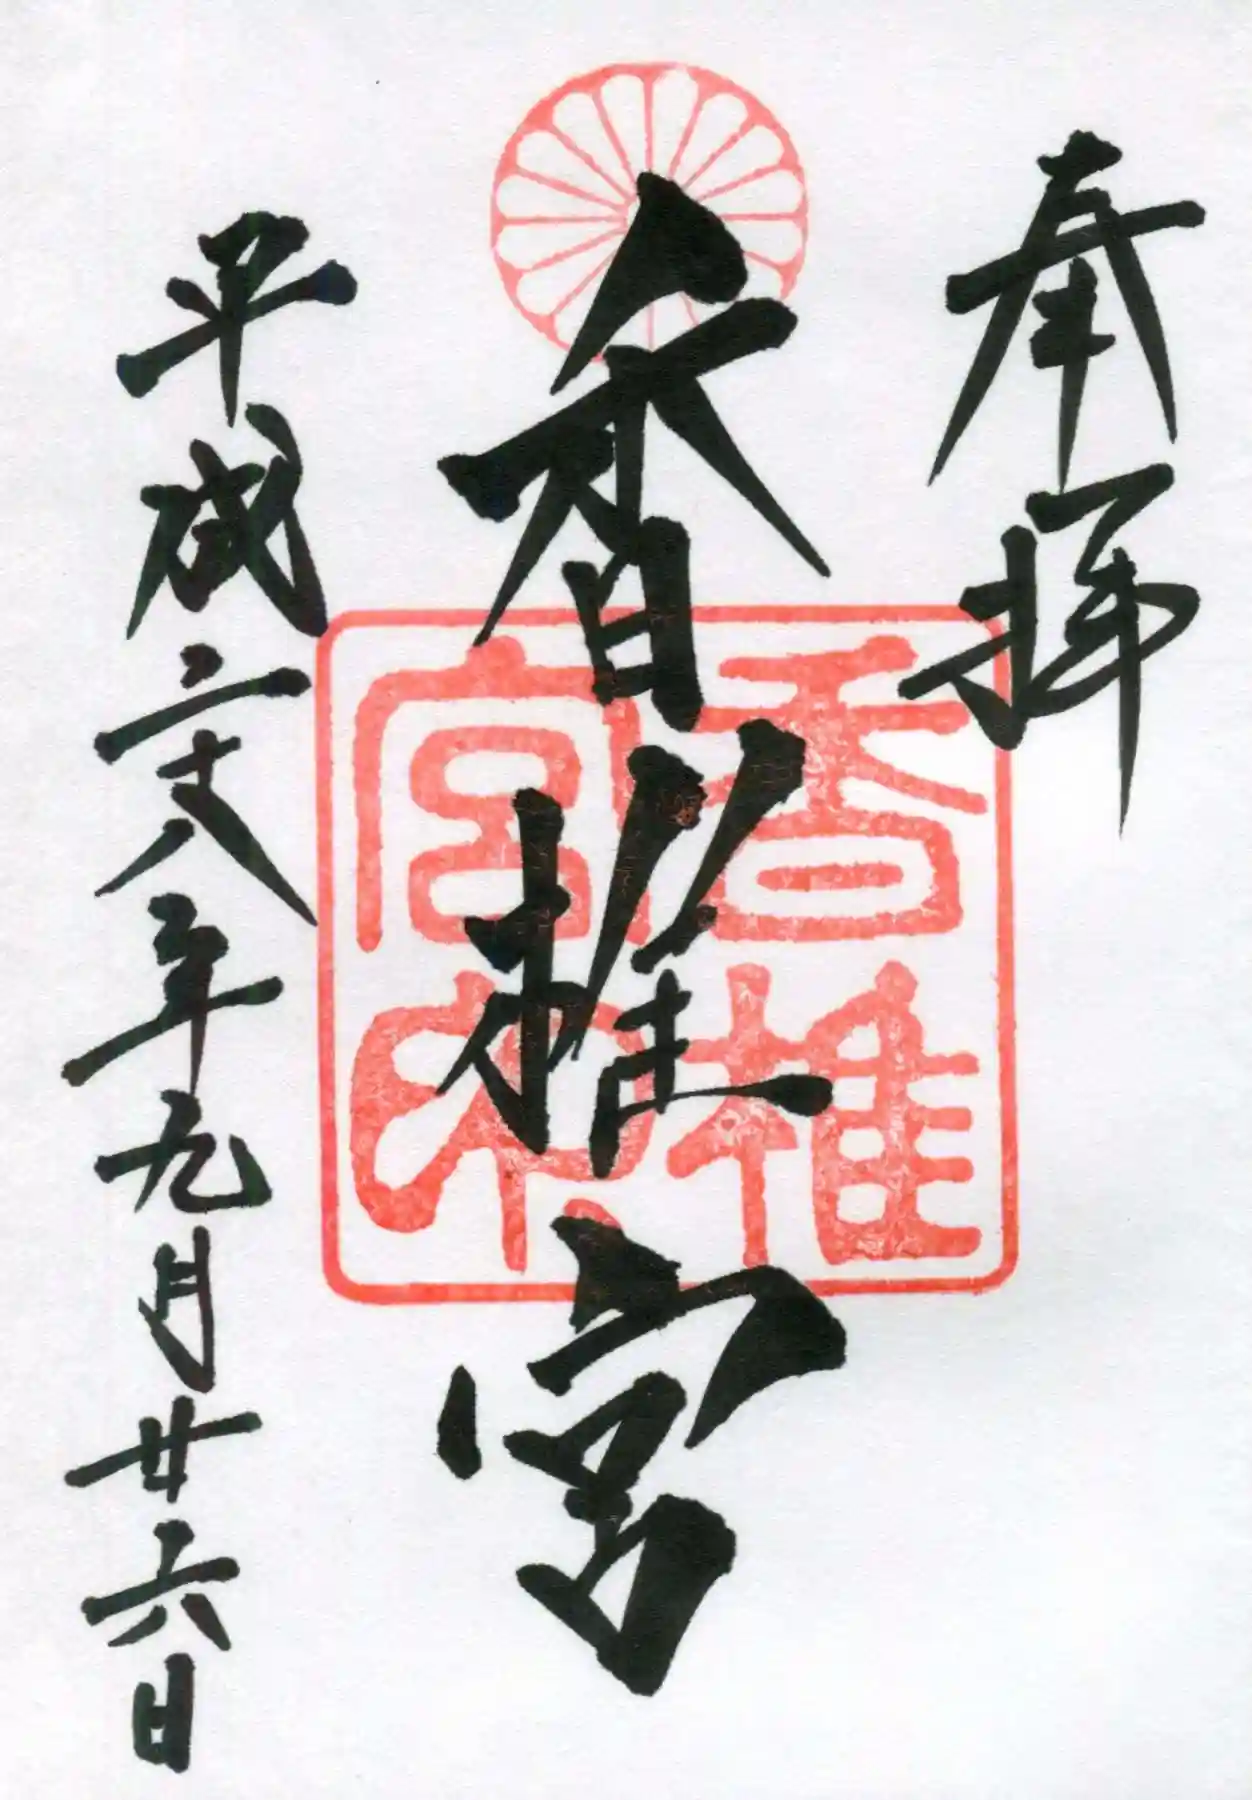 奉拝
香椎宮
香椎
宮印
平成二十八年九月廿六日